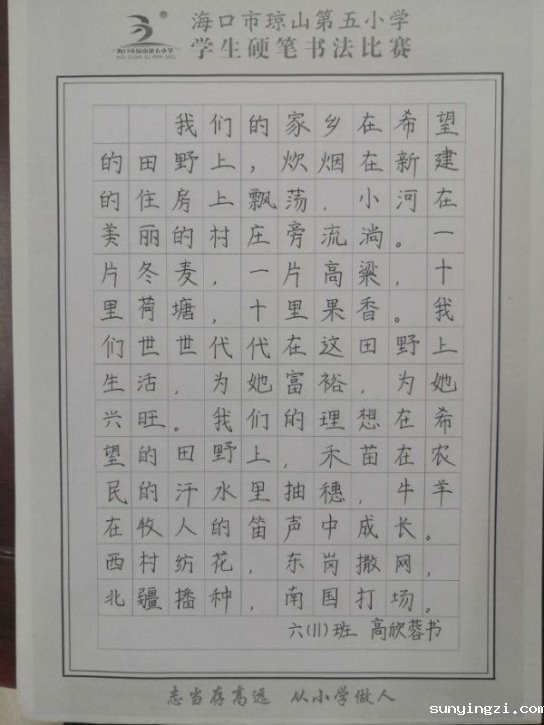 海口市琼山第五小学
学生硬笔书法比赛
海口市琼山第五小学
我们的家乡在希望
的田野上，炊烟在新建
的住房上飘荡，小河在
美丽的村庄旁流淌。一
片冬麦，一片高粱，十
里荷塘，十里果香。我
们世世代代在这田野上
生活，为她富裕，为她
兴旺。我们的理想在希
望的田野上，禾苗在农
民的汗水里抽穗，牛羊
在牧人的笛声中成长。
西村纺花，东岗撒网，
北疆播种，南国打场。
六(11)班 高欣蓉书
志当存高远 从小学做人
sunyingzi.com